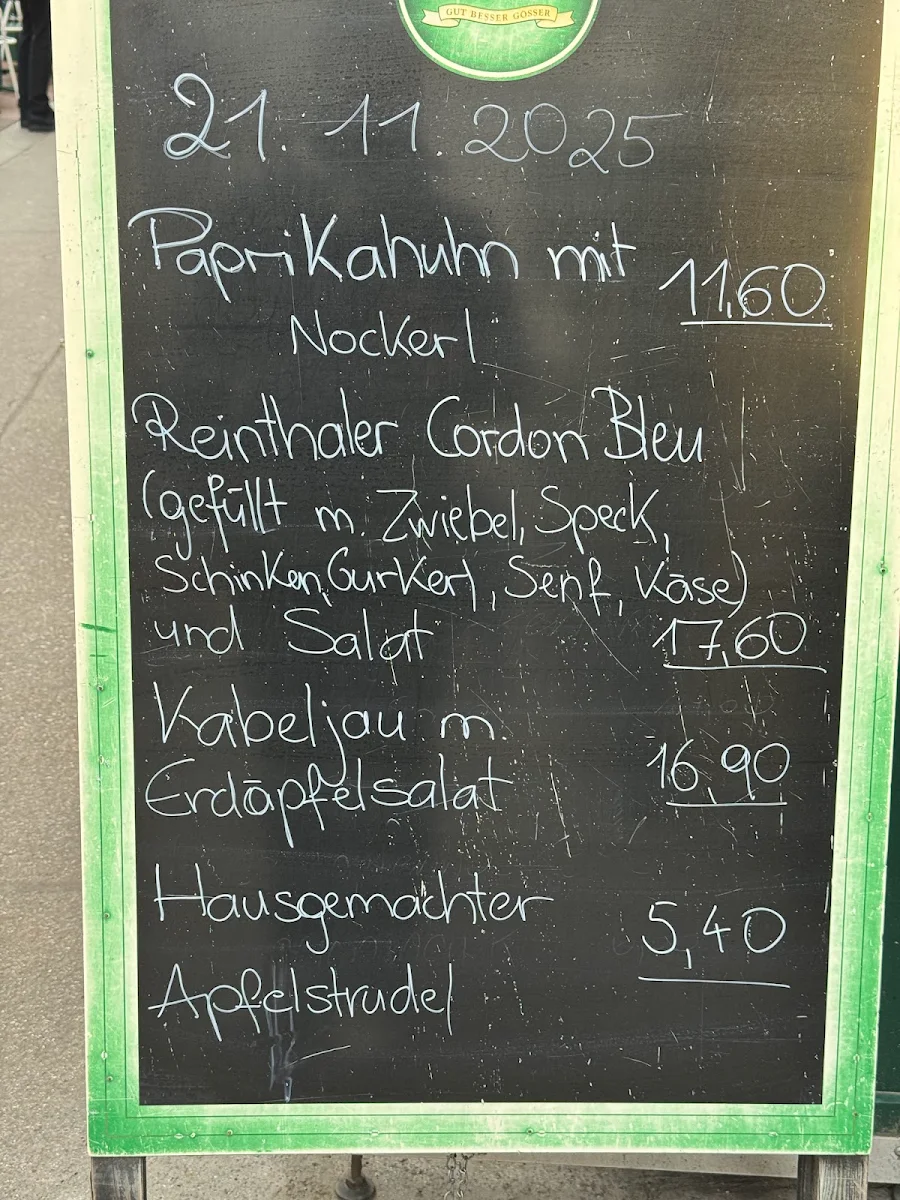 GUT BESSER GÖSSER
21. 11. 2025
Paprikahuhn mit
Nockerl 11,60
Reinthaler Cordon Bleu
(gefüllt m. Zwiebel, Speck,
Schinken, Gurkerl, Senf, Käse)
und Salat 17,60
Kabeljau m.
Erdäpfelsalat 16,90
Hausgemachter
Apfelstrudel 5,40